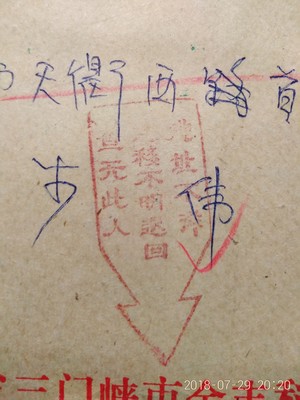 天衢西路首
步 伟
址不详
移不明退回
查无此人
2018-07-29 20:20
三门峡市